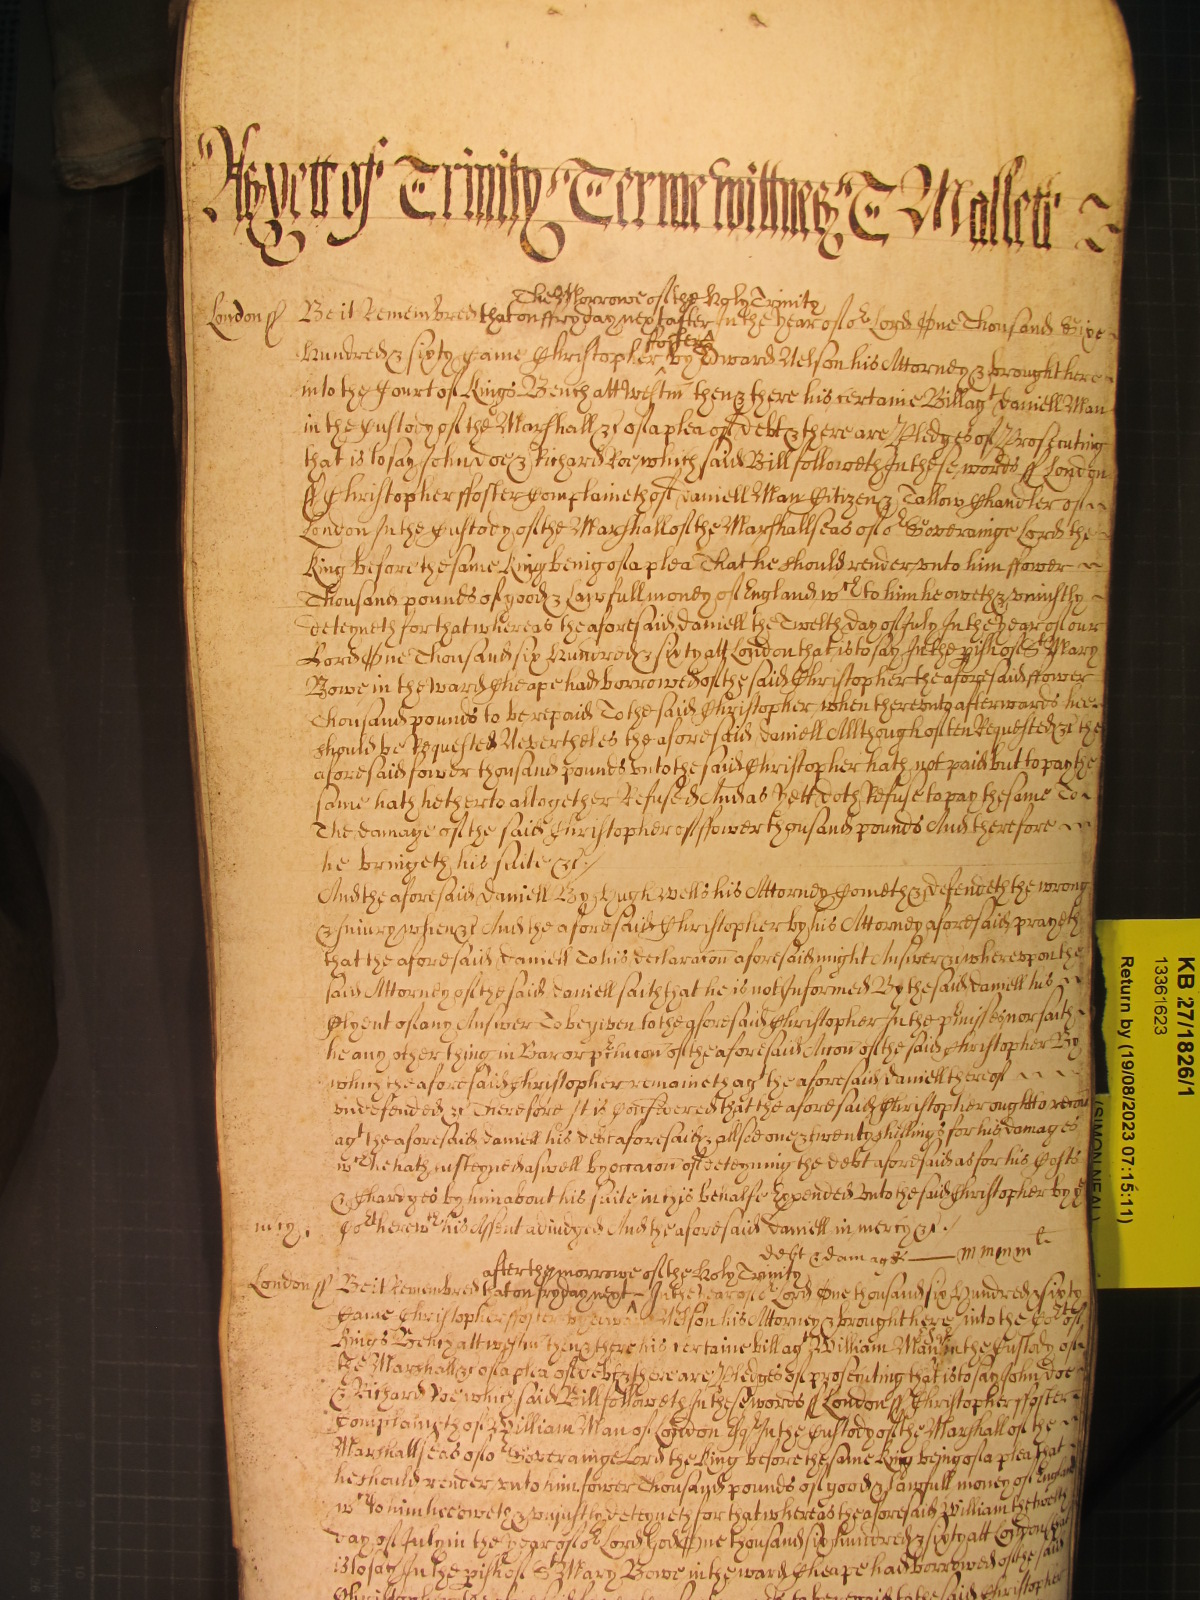 As yett of Trinity Terme wittnes T Mallett
The Morrowe of the Holy Trinity
London ss Be it Remembred that on ffryday next after In the year of or Lord One Thousand Sixe
ffoster
Hundred & sixty Came Christopher by Edward Nelson his Attorney & brought here
into the Court of Kings Bench att Westm then & there his certaine Bill agt Daniell Man
in the Custody of the Marshall &c of a plea of debt & there are Pledges of Prosecuting
that is to say John Doe & Richard Roe which said Bill followeth In these words ss London
ss Christopher ffoster Complaineth of Daniell Man Citizen & Tallow Chandler of
London In the Custody of the Marshall of the Marshallseas of or Soveraigne Lord the
King before the same King being of a plea That he should render unto him ffower
Thousand pounds of good & Lawfull money of England wch to him he oweth & uniustly
deteyneth for that whereas the aforesaid Daniell the Twelth day of July In the year of our
Lord One Thousand six Hundred & sixty att London that is to say In the pish of St Mary
Bowe in the ward Cheape had borrowed of the said Christopher the aforesaid ffower
thousand pounds to be repaid To the said Christopher when thereunto afterwards hee
should be Requested Neverthelès the aforesaid Daniell Allthough often Requested &c the
aforesaid fower thousand pounds unto the said Christopher hath not paid but to pay the
same hath hetherto altogether Refused And as Yett doth Refuse to pay the same To
The damage of the said Christopher of ffower thousand pounds And therefore
he bringeth his suite &c
And the aforesaid Daniell By Hugh Wells his Attorney Cometh & defendeth the wrong
& Iniury when &c And the aforesaid Christopher by his Attorney aforesaid prayeth
that the aforesaid Daniell To his declaracon aforesaid might Answer &c whereupon the
said Attorney of the said Daniell saith that he is not Informed By the said Daniell his
Clyent of any Answer To be given to the aforesaid Christopher In the pmisses nor saith
he any other thing in Bar or of the aforesaid Accon of the said Christopher By
which the aforesaid Christopher remaineth agt the aforesaid Daniell thereof
undefended &c Therefore It is Considered that the aforesaid Christopher ought to recou
agt the aforesaid Daniell his debt aforesaid & allsoe one & twenty shillings for his damages
wch he hath susteyned aswell by occacon of deteyning the debt aforesaid as for his Costs
& Chardges by him about his suite in this behalfe Expended unto the said Christopher by ye
mcy. Cort here wth his Assent adiudged And the aforesaid Daniell in mercy &c
debt & damages mmmm li
after the morrowe of the Holy Trinity
London ss Be it Remembred that on ffryday next In the year of or Lord One thousand six Hundred & sixty
Came Christopher ffoster by Edward Nelson his Attorney & brought here into the Cort of
Kings Bench att westm then & there his certaine bill agt William Man in the Custody of
the Marshall &c of a plea of debt & there are Pledges of prosecuting that is to say John Doe
& Richard Roe which said Bill followeth In these words ss London ss Christopher ffoster
Complaineth of William Man of London Esqr In the Custody of the Marshall of the
Marshallseas of or Soveraigne Lord the King before the same King being of a plea that
he should render unto him fower Thousand pounds of good & lawfull money of England
wch to him hee oweth & uniustly deteyneth for that whereas the aforesaid William the twelth
day of July in the year of or Lord God One thousand six hundred & sixty att London that
is to say In the pish of St Mary Bowe in the ward Cheape had borrowed of the said
Christopher to be repaid to the said Christopher
KB 27/1826/1
13361623
Return by (19/08/2023 07:15:11)
(SIMON NEAL)